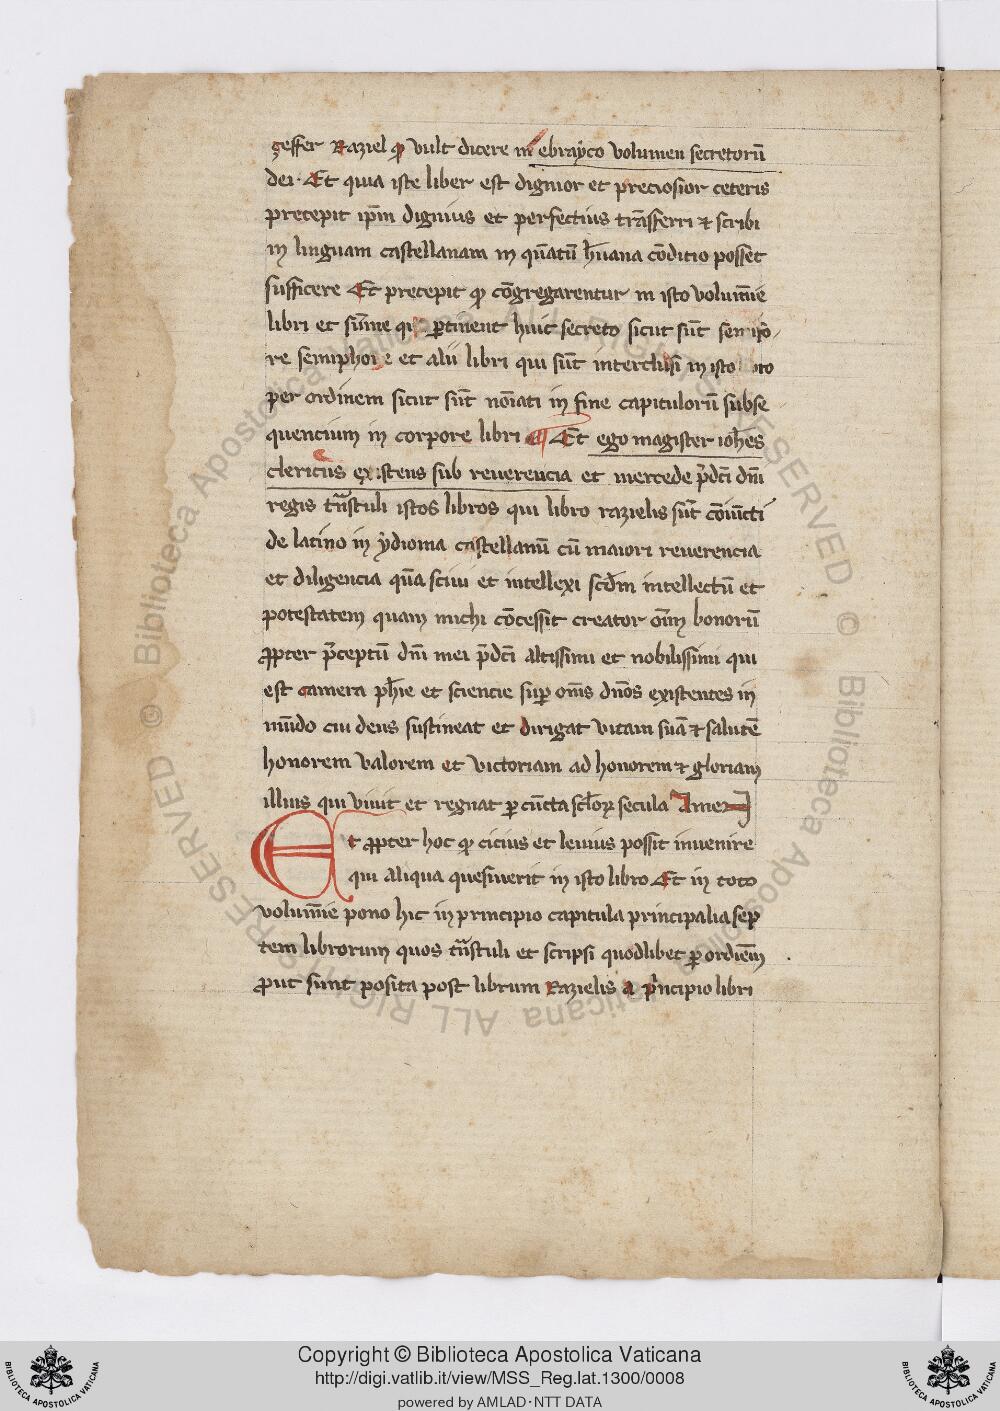 geffer Raziel qͥ vult dicere in ebrayco volumen secretorū
dei · Et quia iste liber est dignior et preciosior ceteris
precepit ip̄m dignius et perfectius trāsferri ⁊ scribi
in linguam castellanam in quātū hūana cōditio posset
sufficere Et precepit qͥ cōgregarentur in isto volumīe
libri et sūme qui ꝑtinent huic secreto sicut sūt
re semiphore et alii libri qui sūt interclusi in isto
per ordinem sicut sūt noīati in fine capitulorū subse
quencium in corpore libri ¶ Et ego magister ioh̄es
clericus existens sub reuerencia et mercede p̄dc̄i dn̄i
regis trāstuli istos libros qui libro razielis sūt cōiūcti
de latino in ydioma castellanū cū maiori reuerencia
et diligencia qua sciui et intellexi scd̄m intellectū et
potestatem quam michi cōcessit creator oīm bonorū
ꝓpter p̄ceptū dn̄i mei p̄dc̄i altissimi et nobilissimi qui
est camera ph̄ie et sciencie suꝑ om̄s dn̄os existentes in
mūdo cui deus sustineat et dirigat vitam suā ⁊ salutē
honorem valorem et victoriam ad honorem ⁊ gloriam
illius qui viuit et regnat ꝑ cūcta sc̄loꝝ secula Amen
Et ꝓpter hoc qͥ cicius et leuius possit inuenire
qui aliqua quesiuerit in isto libro Et in toto
volumīe pono hic in principio capitula principalia sep
tem librorum quos trāstuli et scripsi quodlibet ꝑ ordiēm
ꝓut sunt posita post librum Razielis a p̄ncipio libri
Copyright © Biblioteca Apostolica Vaticana
http://digi.vatlib.it/view/MSS_Reg.lat.1300/0008
powered by AMLAD·NTT DATA
BIBLIOTECA APOSTOLICA VATICANA
BIBLIOTECA APOSTOLICA VATICANA
© Biblioteca Apostolica Vaticana ALL RIGHTS RESERVED © Biblioteca Apostolica Vaticana ALL RIGHTS RESERVED